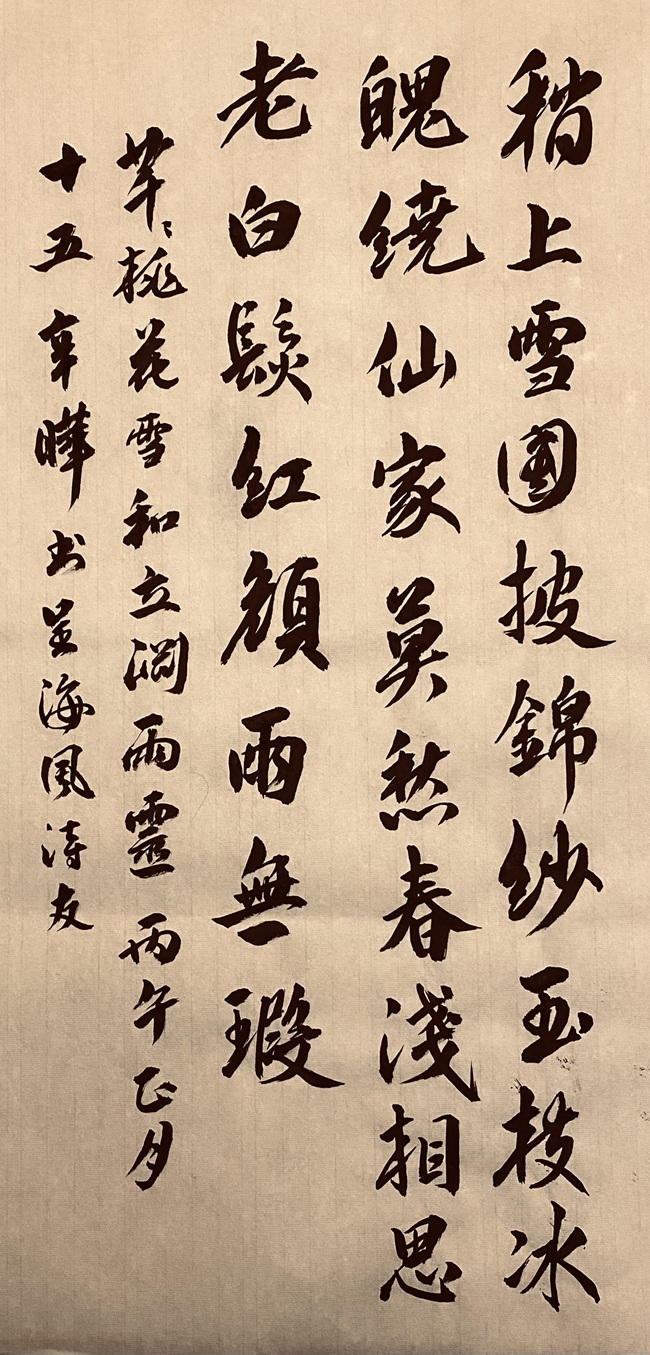 稍上雪團披錦紗玉枝冰
魄繞仙家莫愁春淺相思
老白髮紅顏兩無瑕
芊〻桃花雪和立澗雨靈 丙午正月
十五辛曄书呈海風诗友